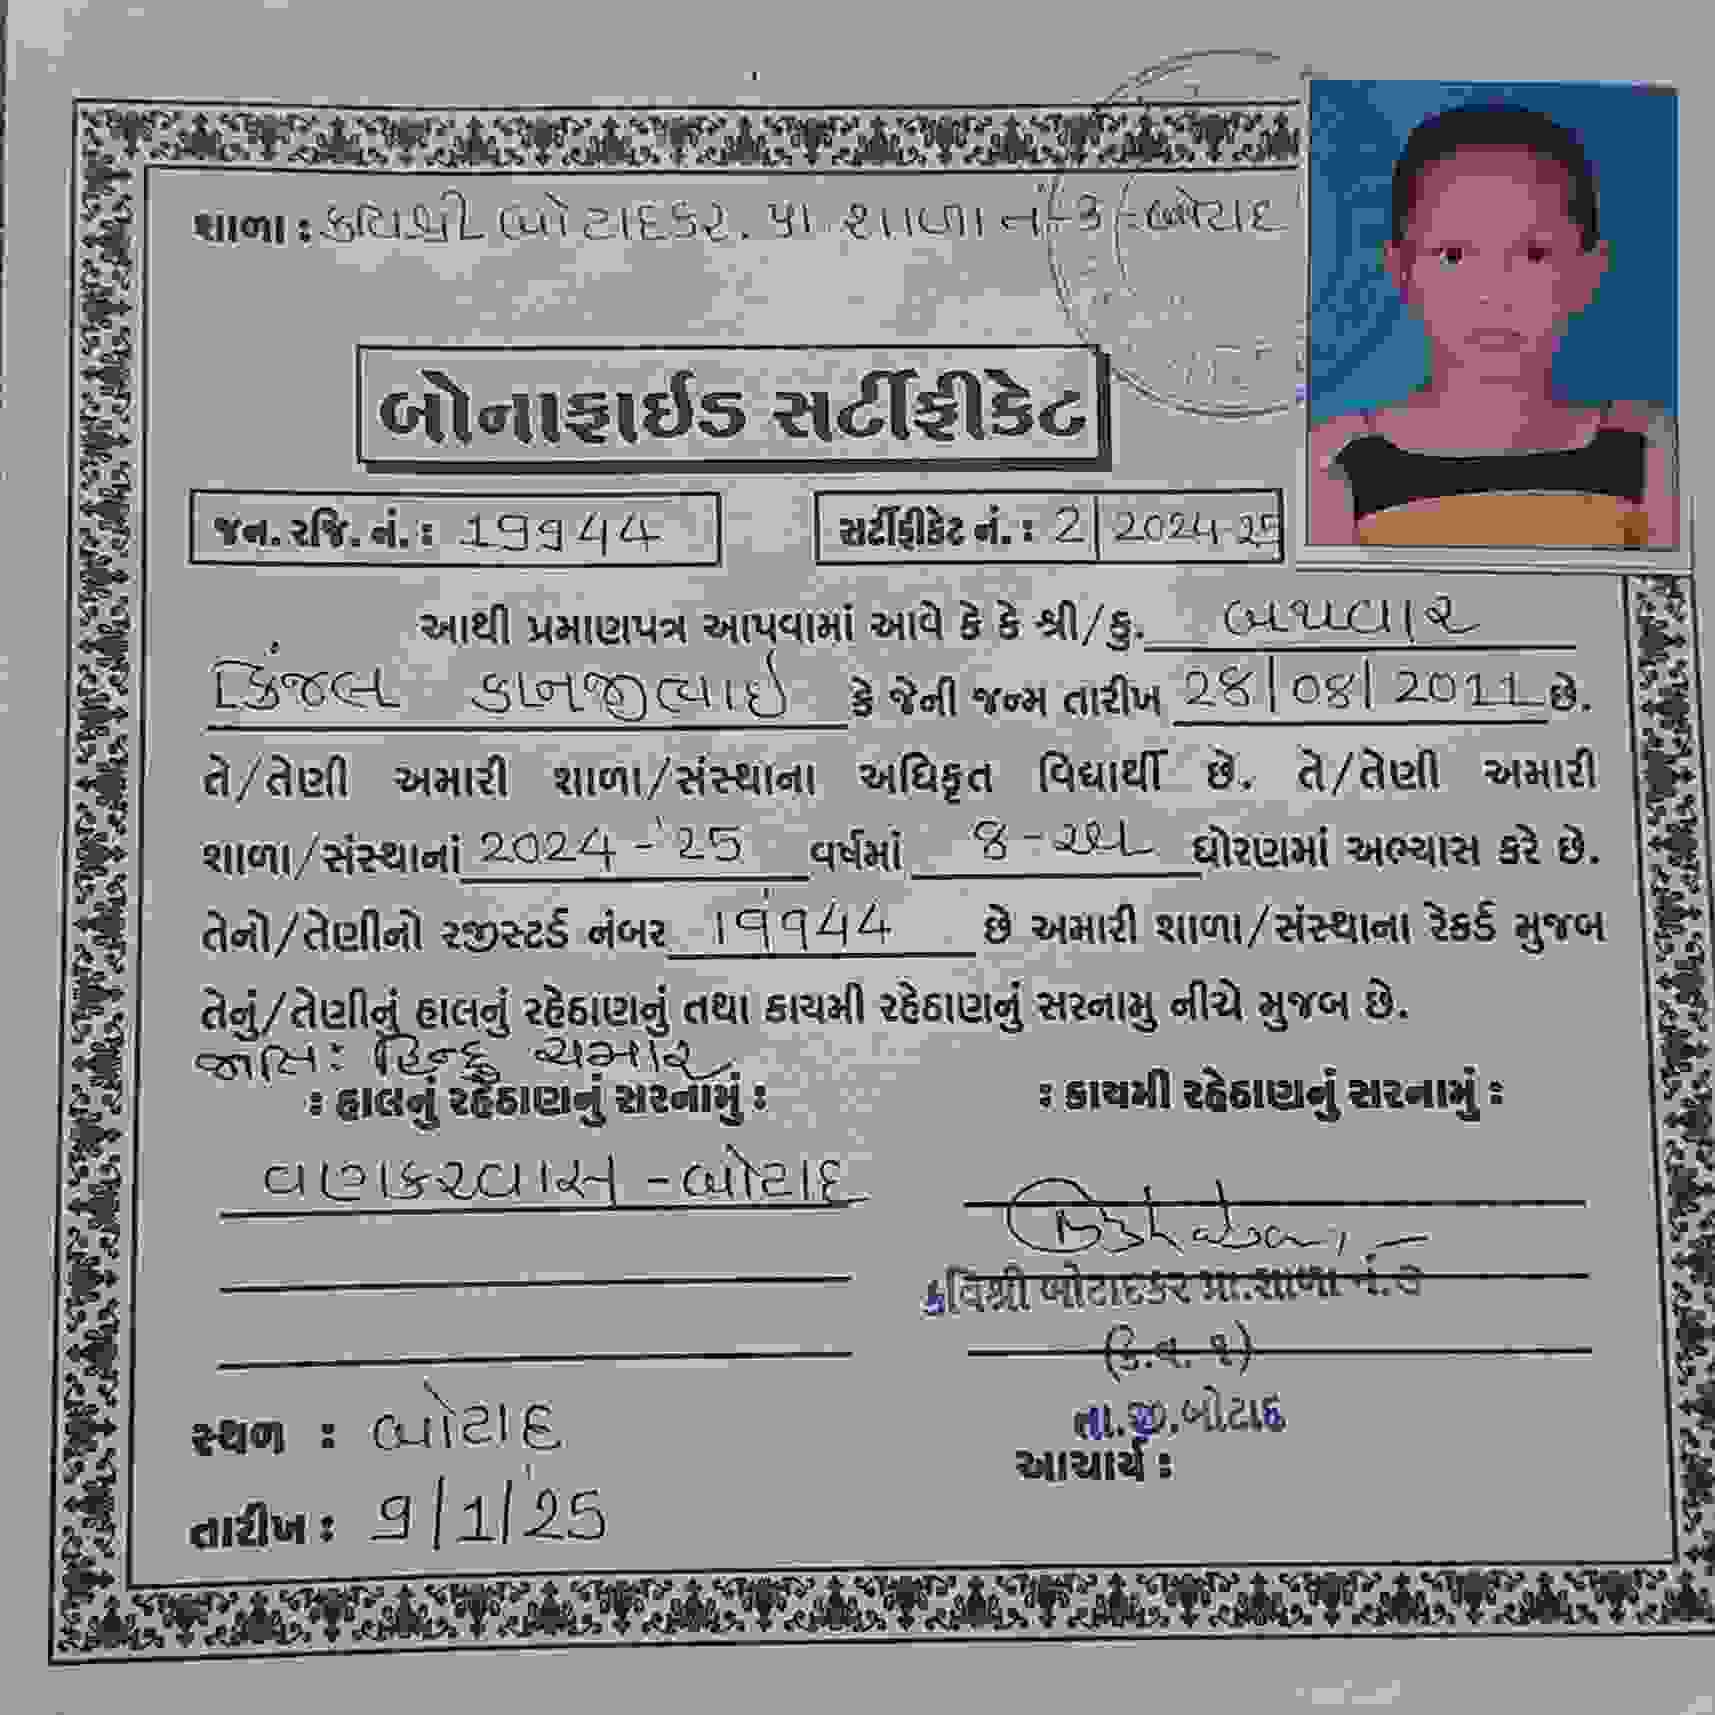 શાળા : કવિશ્રી બોટાદકર. પ્રા શાળા નં-3 -બોટાદ
બોનાફાઈડ સર્ટીફીકેટ
જન. રજિ. નં. : 19944
સર્ટીફીકેટ નં. : 2 | 2024-25
આથી પ્રમાણપત્ર આપવામાં આવે કે કે શ્રી/કુ. બથવાર
કિંજલ કાનજીભાઈ કે જેની જન્મ તારીખ 28/08/2011 છે.
તે/તેણી અમારી શાળા/સંસ્થાના અધિકૃત વિદ્યાર્થી છે. તે/તેણી અમારી
શાળા/સંસ્થાનાં 2024-'25 વર્ષમાં 8- ધોરણમાં અભ્યાસ કરે છે.
તેનો/તેણીનો રજીસ્ટર્ડ નંબર 19944 છે અમારી શાળા/સંસ્થાના રેકર્ડ મુજબ
તેનું/તેણીનું હાલનું રહેઠાણનું તથા કાયમી રહેઠાણનું સરનામુ નીચે મુજબ છે.
જાતિ: હિન્દુ ચમાર
: હાલનું રહેઠાણનું સરનામું :
: કાયમી રહેઠાણનું સરનામું :
વણકરવાસ - બોટાદ
કવિશ્રી બોટાદકર પ્રા.શાળા નં.૩
(કે.વ. ૧)
તા.જી.બોટાદ
આચાર્ય :
સ્થળ : બોટાદ
તારીખ : 9/1/'25